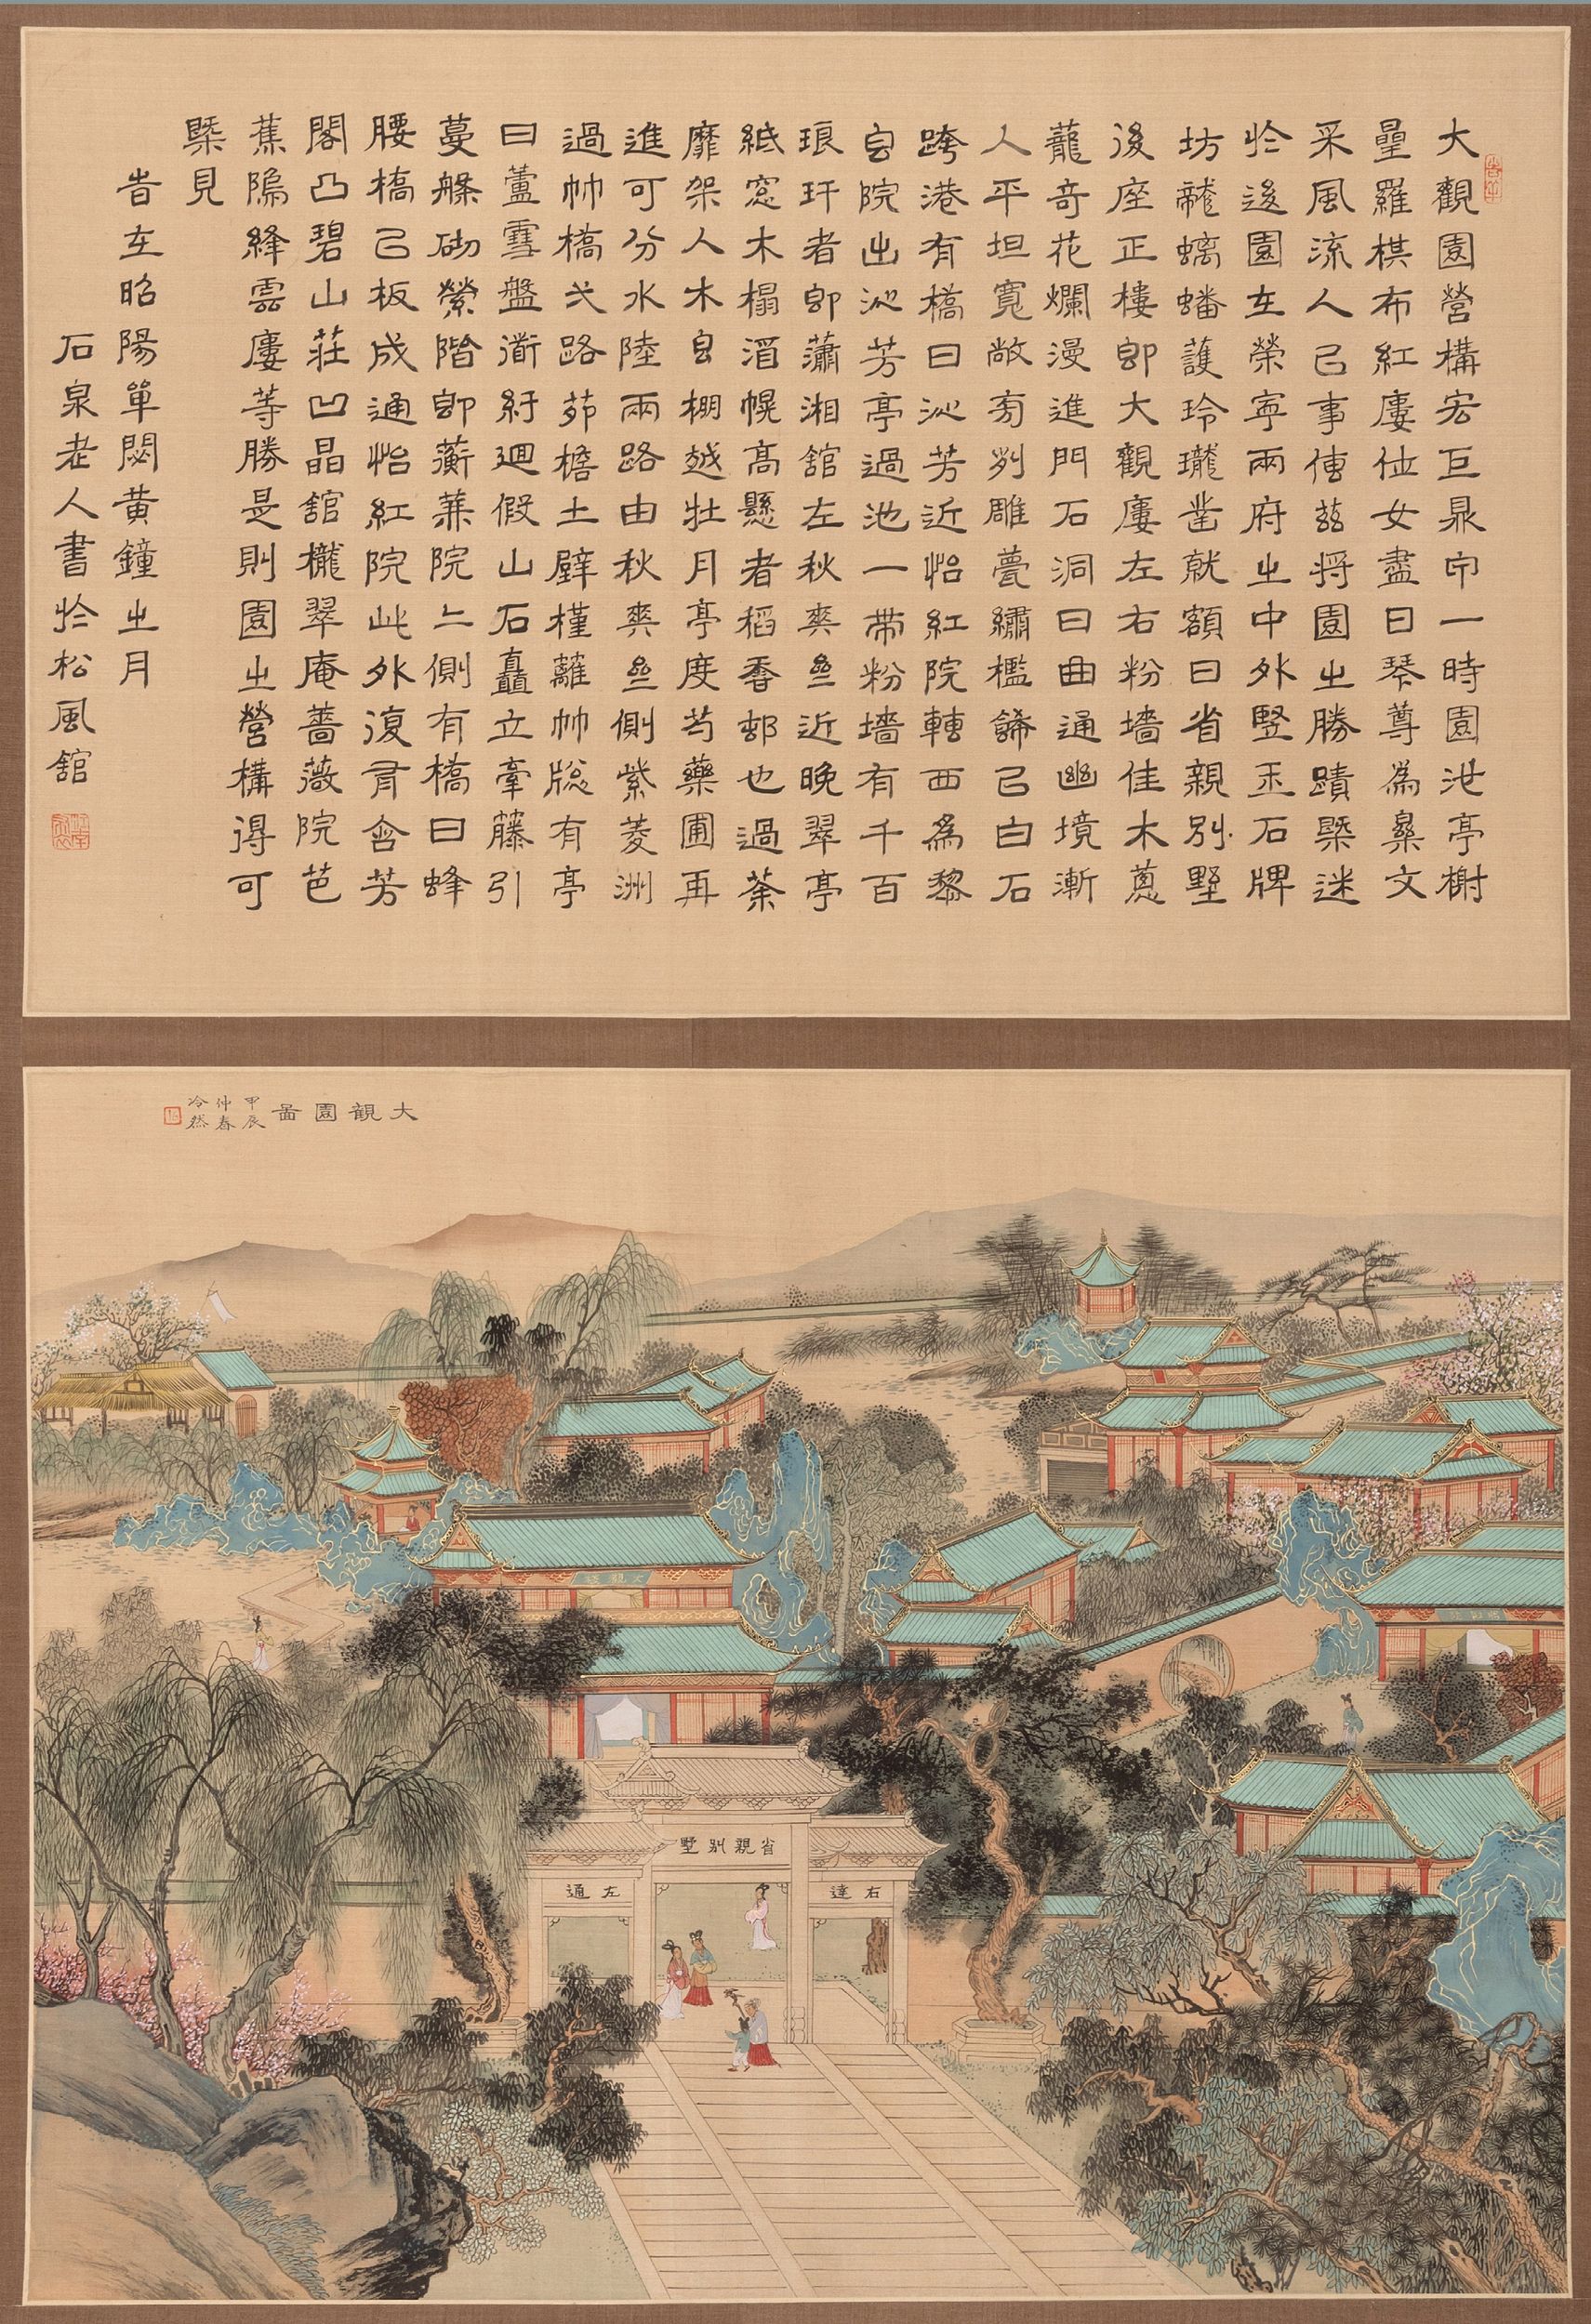 大觀園營構宏巨鼎卬一時園池亭榭
壘羅棋布紅廔位女盡日琴尊為羣文
采風流人己事傳茲將園㞢勝蹟槩述
於後園在榮寧兩府㞢中外竪玉石牌
坊龍螭蟠護玲瓏凿就額曰省親別墅
後座正樓即大觀廔左右粉墻佳木蔥
蘢奇花爛漫進門石洞曰曲通幽境漸
人平坦寬敞旁列雕甍繡檻餙已白石
跨港有橋曰沁芳近怡紅院轉西為黎
白院出沁芳亭過池一帶粉墻有千百
琅玕者即瀟湘舘左秋爽近晚翠亭
紙窓木榻湣幌高懸者稻香邨也過荼
靡架人木白棚越牡月亭度芍藥圃再
進可分水陸兩路由秋爽側紫菱洲
過帥橋弍路茆檐土壁槿蘺帥牎有亭
曰蘆雪盤衜紆迴假山石矗立牽藤引
蔓艤砌縈階即蘅蕪院上側有橋曰蜂
腰橋己板成通怡紅院此外復有含芳
閣凸碧山莊凹晶舘櫳翠庵薔薇院芭
蕉隖絳雲廔等勝是則園㞢營構得可
槩見
旹在昭陽單閼黃鐘㞢月
石泉老人書於松風舘
大觀園啚
甲辰
仲春
冷然
大觀樓
省親別墅
左通
右達